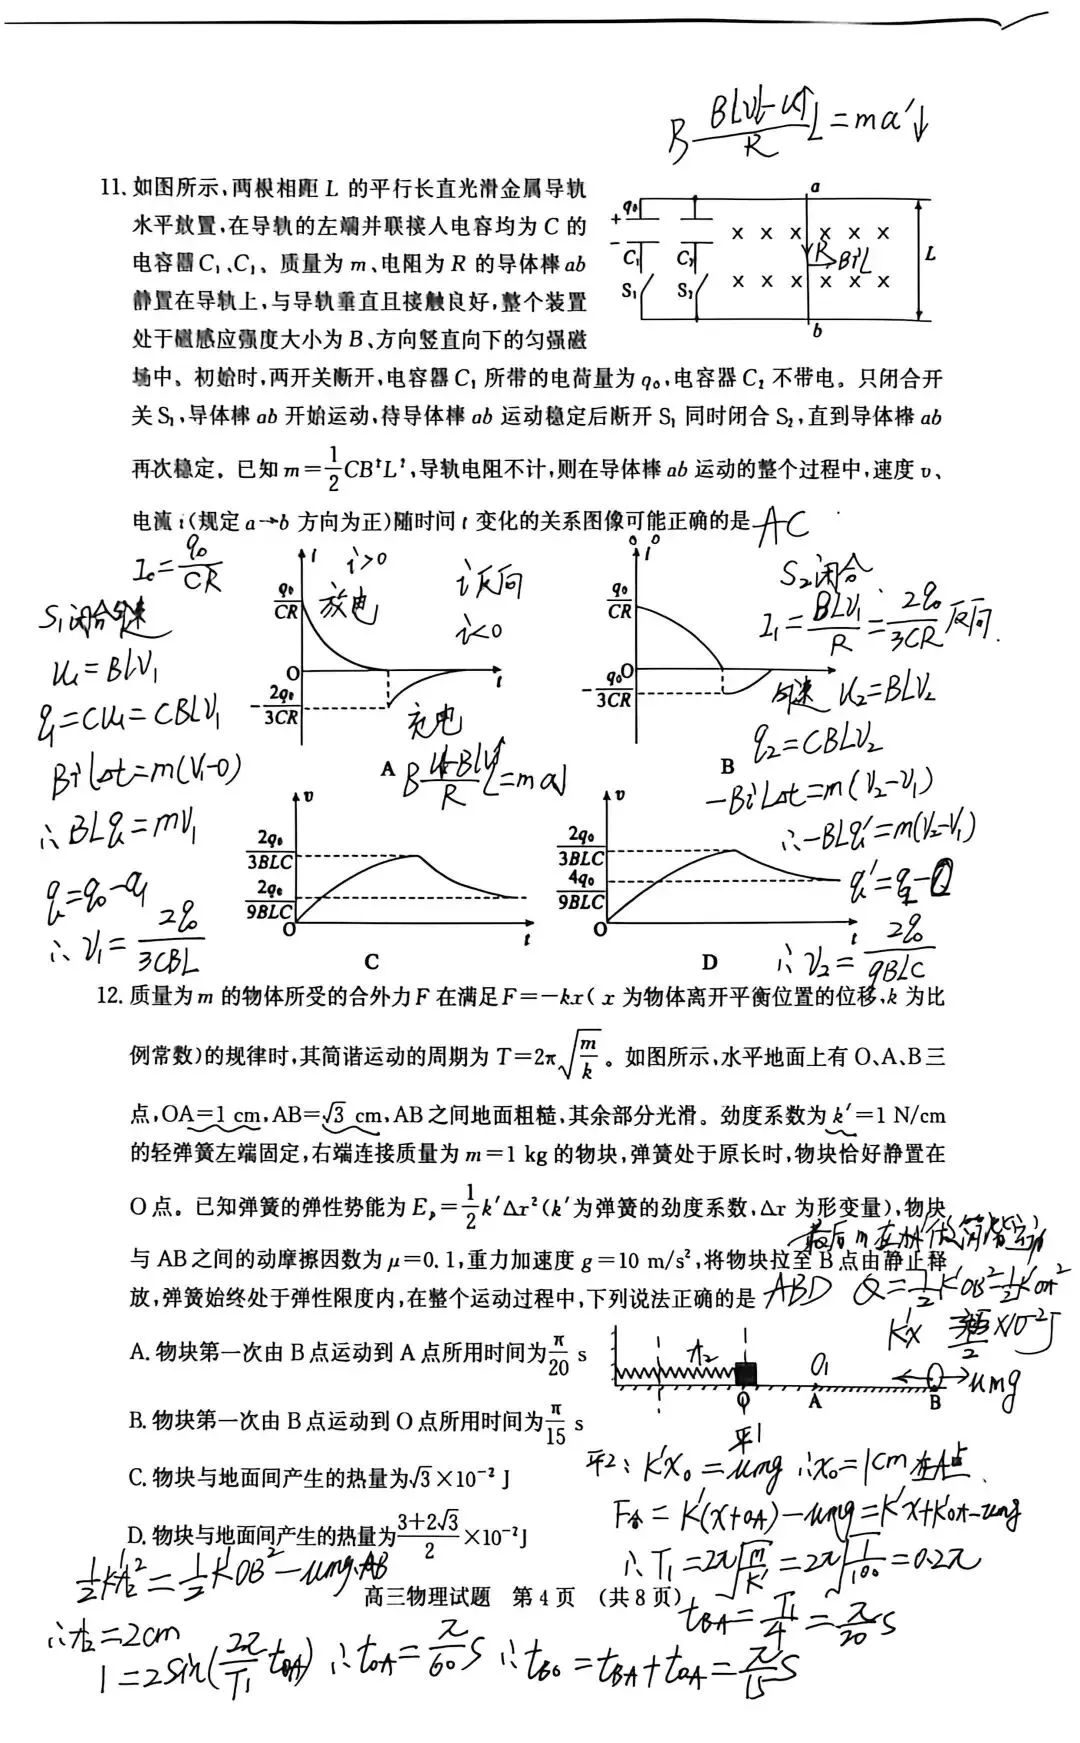 B (BLv↓-u↑)/R L=ma'↓
11. 如图所示,两根相距 L 的平行长直光滑金属导轨
水平放置,在导轨的左端并联接入电容均为 C 的
电容器 C₁、C₂。质量为 m、电阻为 R 的导体棒 ab
静置在导轨上,与导轨垂直且接触良好,整个装置
处于磁感应强度大小为 B、方向竖直向下的匀强磁
场中。初始时,两开关断开,电容器 C₁ 所带的电荷量为 q₀,电容器 C₂ 不带电。只闭合开
关 S₁,导体棒 ab 开始运动,待导体棒 ab 运动稳定后断开 S₁ 同时闭合 S₂,直到导体棒 ab
再次稳定。已知 m=1/2 CB²L²,导轨电阻不计,则在导体棒 ab 运动的整个过程中,速度 v、
电流 i(规定 a→b 方向为正)随时间 t 变化的关系图像可能正确的是 AC
a
q₀
+
-
C₁ C₂
S₁ S₂
× × × × × ×
R BiL
× × × × × ×
L
b
I₀=q₀/CR
S₁闭合匀速
u₁=BLv₁
q₁=Cu₁=CBLv₁
BiLΔt=m(v₁-0)
∴BLq=mv₁
q=q₀-q₁
∴v₁=2q₀/3CBL
i
i>0
q₀/CR
放电
O
t
-2q₀/3CR
充电
A
i反向
i<0
i
q₀/CR
O
-q₀/3CR
B
S₂闭合
I₁=BLv₁/R=2q₀/3CR 反向.
匀速 u₂=BLv₂
q₂=CBLv₂
-BiLΔt=m(v₂-v₁)
∴-BLq'=m(v₂-v₁)
∴v₂=2q₀/9BLC
v
2q₀/3BLC
2q₀/9BLC
O
t
C
v
2q₀/3BLC
4q₀/9BLC
O
t
D
12. 质量为 m 的物体所受的合外力 F 在满足 F=-kx( x 为物体离开平衡位置的位移,k 为比
例常数)的规律时,其简谐运动的周期为 T=2π√(m/k)。如图所示,水平地面上有 O、A、B 三
点,OA=1 cm,AB=√3 cm,AB 之间地面粗糙,其余部分光滑。劲度系数为 k'=1 N/cm
的轻弹簧左端固定,右端连接质量为 m=1 kg 的物块,弹簧处于原长时,物块恰好静置在
O 点。已知弹簧的弹性势能为 Eₚ=1/2 k'Δx²(k'为弹簧的劲度系数,Δx 为形变量),物块
与 AB 之间的动摩擦因数为 μ=0.1,重力加速度 g=10 m/s²,将物块拉至 B 点由静止释
放,弹簧始终处于弹性限度内,在整个运动过程中,下列说法正确的是 ABD
Q=1/2 k'OB²-1/2 k'OA²
A. 物块第一次由 B 点运动到 A 点所用时间为 π/20 s
B. 物块第一次由 B 点运动到 O 点所用时间为 π/15 s
C. 物块与地面间产生的热量为 √3×10⁻² J
D. 物块与地面间产生的热量为 (3+2√3)/2×10⁻² J
A₂
O₁
k'x
μmg
O A B
平1
平2: k'x₀=μmg ∴x₀=1cm 在A点
F合=k'(x+OA)-μmg=k'x+k'OA-μmg
∴T₁=2π√(m/k')=2π√(1/100)=0.2π
t_BA=T₁/4=π/20 s
1/2 k'A₂²=1/2 k'OB²-μmg·AB
高三物理试题 第 4 页 (共 8 页)
∴A₂=2cm
1=2sin(2π/T₁ t_OA) ∴t_OA=π/60 s ∴t_BO=t_BA+t_OA=π/15 s